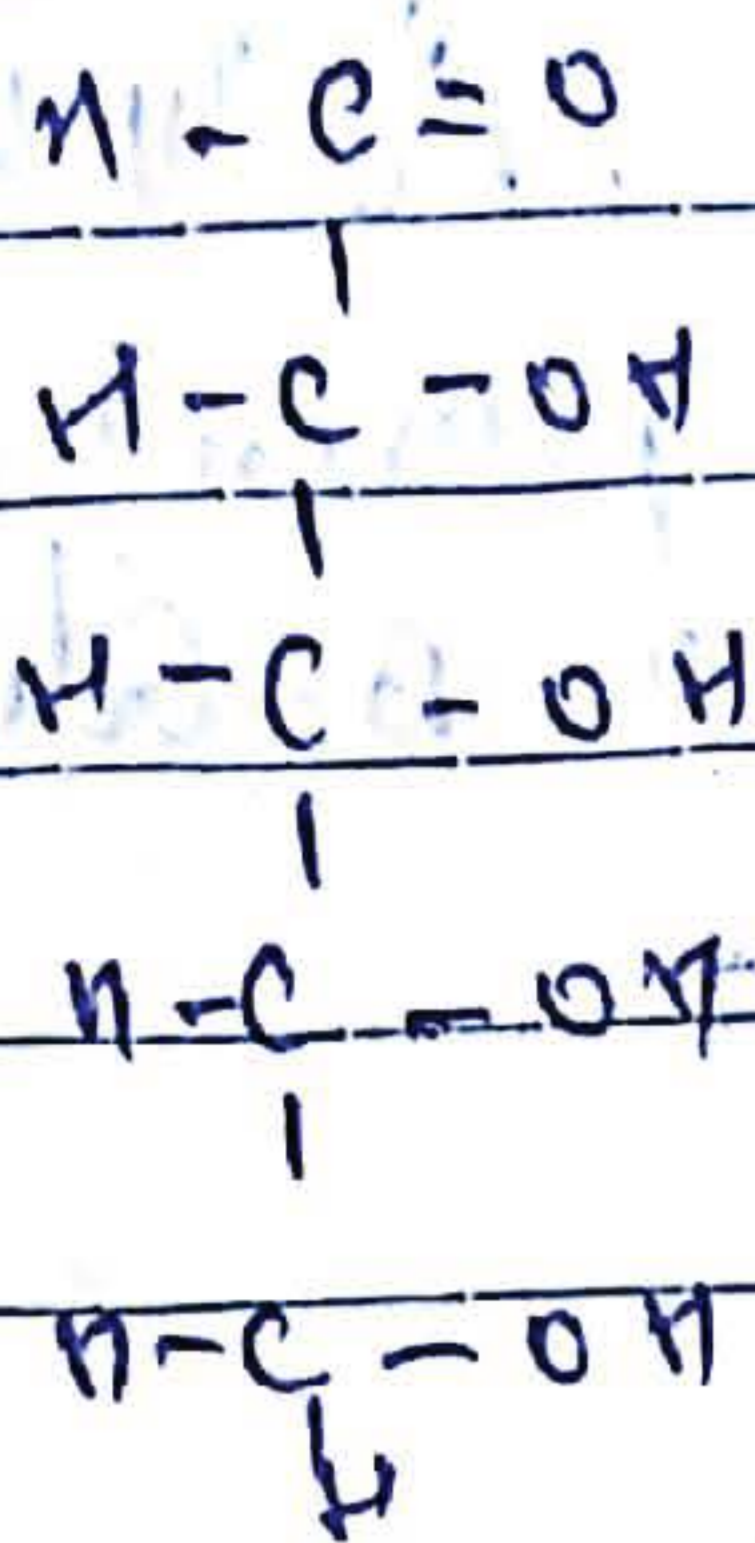 H - C = O
|
H - C - OH
|
H - C - OH
|
H - C - OH
|
H - C - OH
|
H